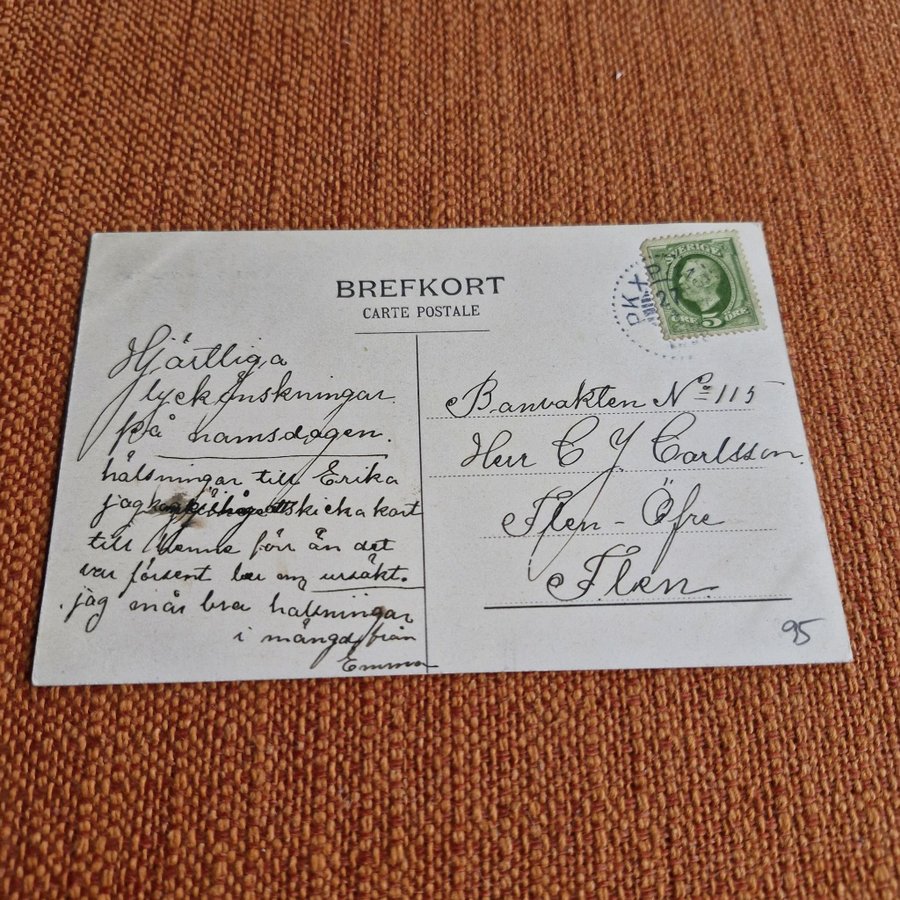 BREFKORT
CARTE POSTALE
SVERIGE
5
ÖRE ÖRE
PKXP
27
Hjärtliga
lyckönskningar
på namsdagen.
hälsningar till Erika
jag skicka kort
till henne förr än det
var försent ber om ursäkt.
jag mår bra halsningar
i mängd från
Emma
Banvakten No 115
Herr C J Carlsson
Flen - Öfre
Flen.
95